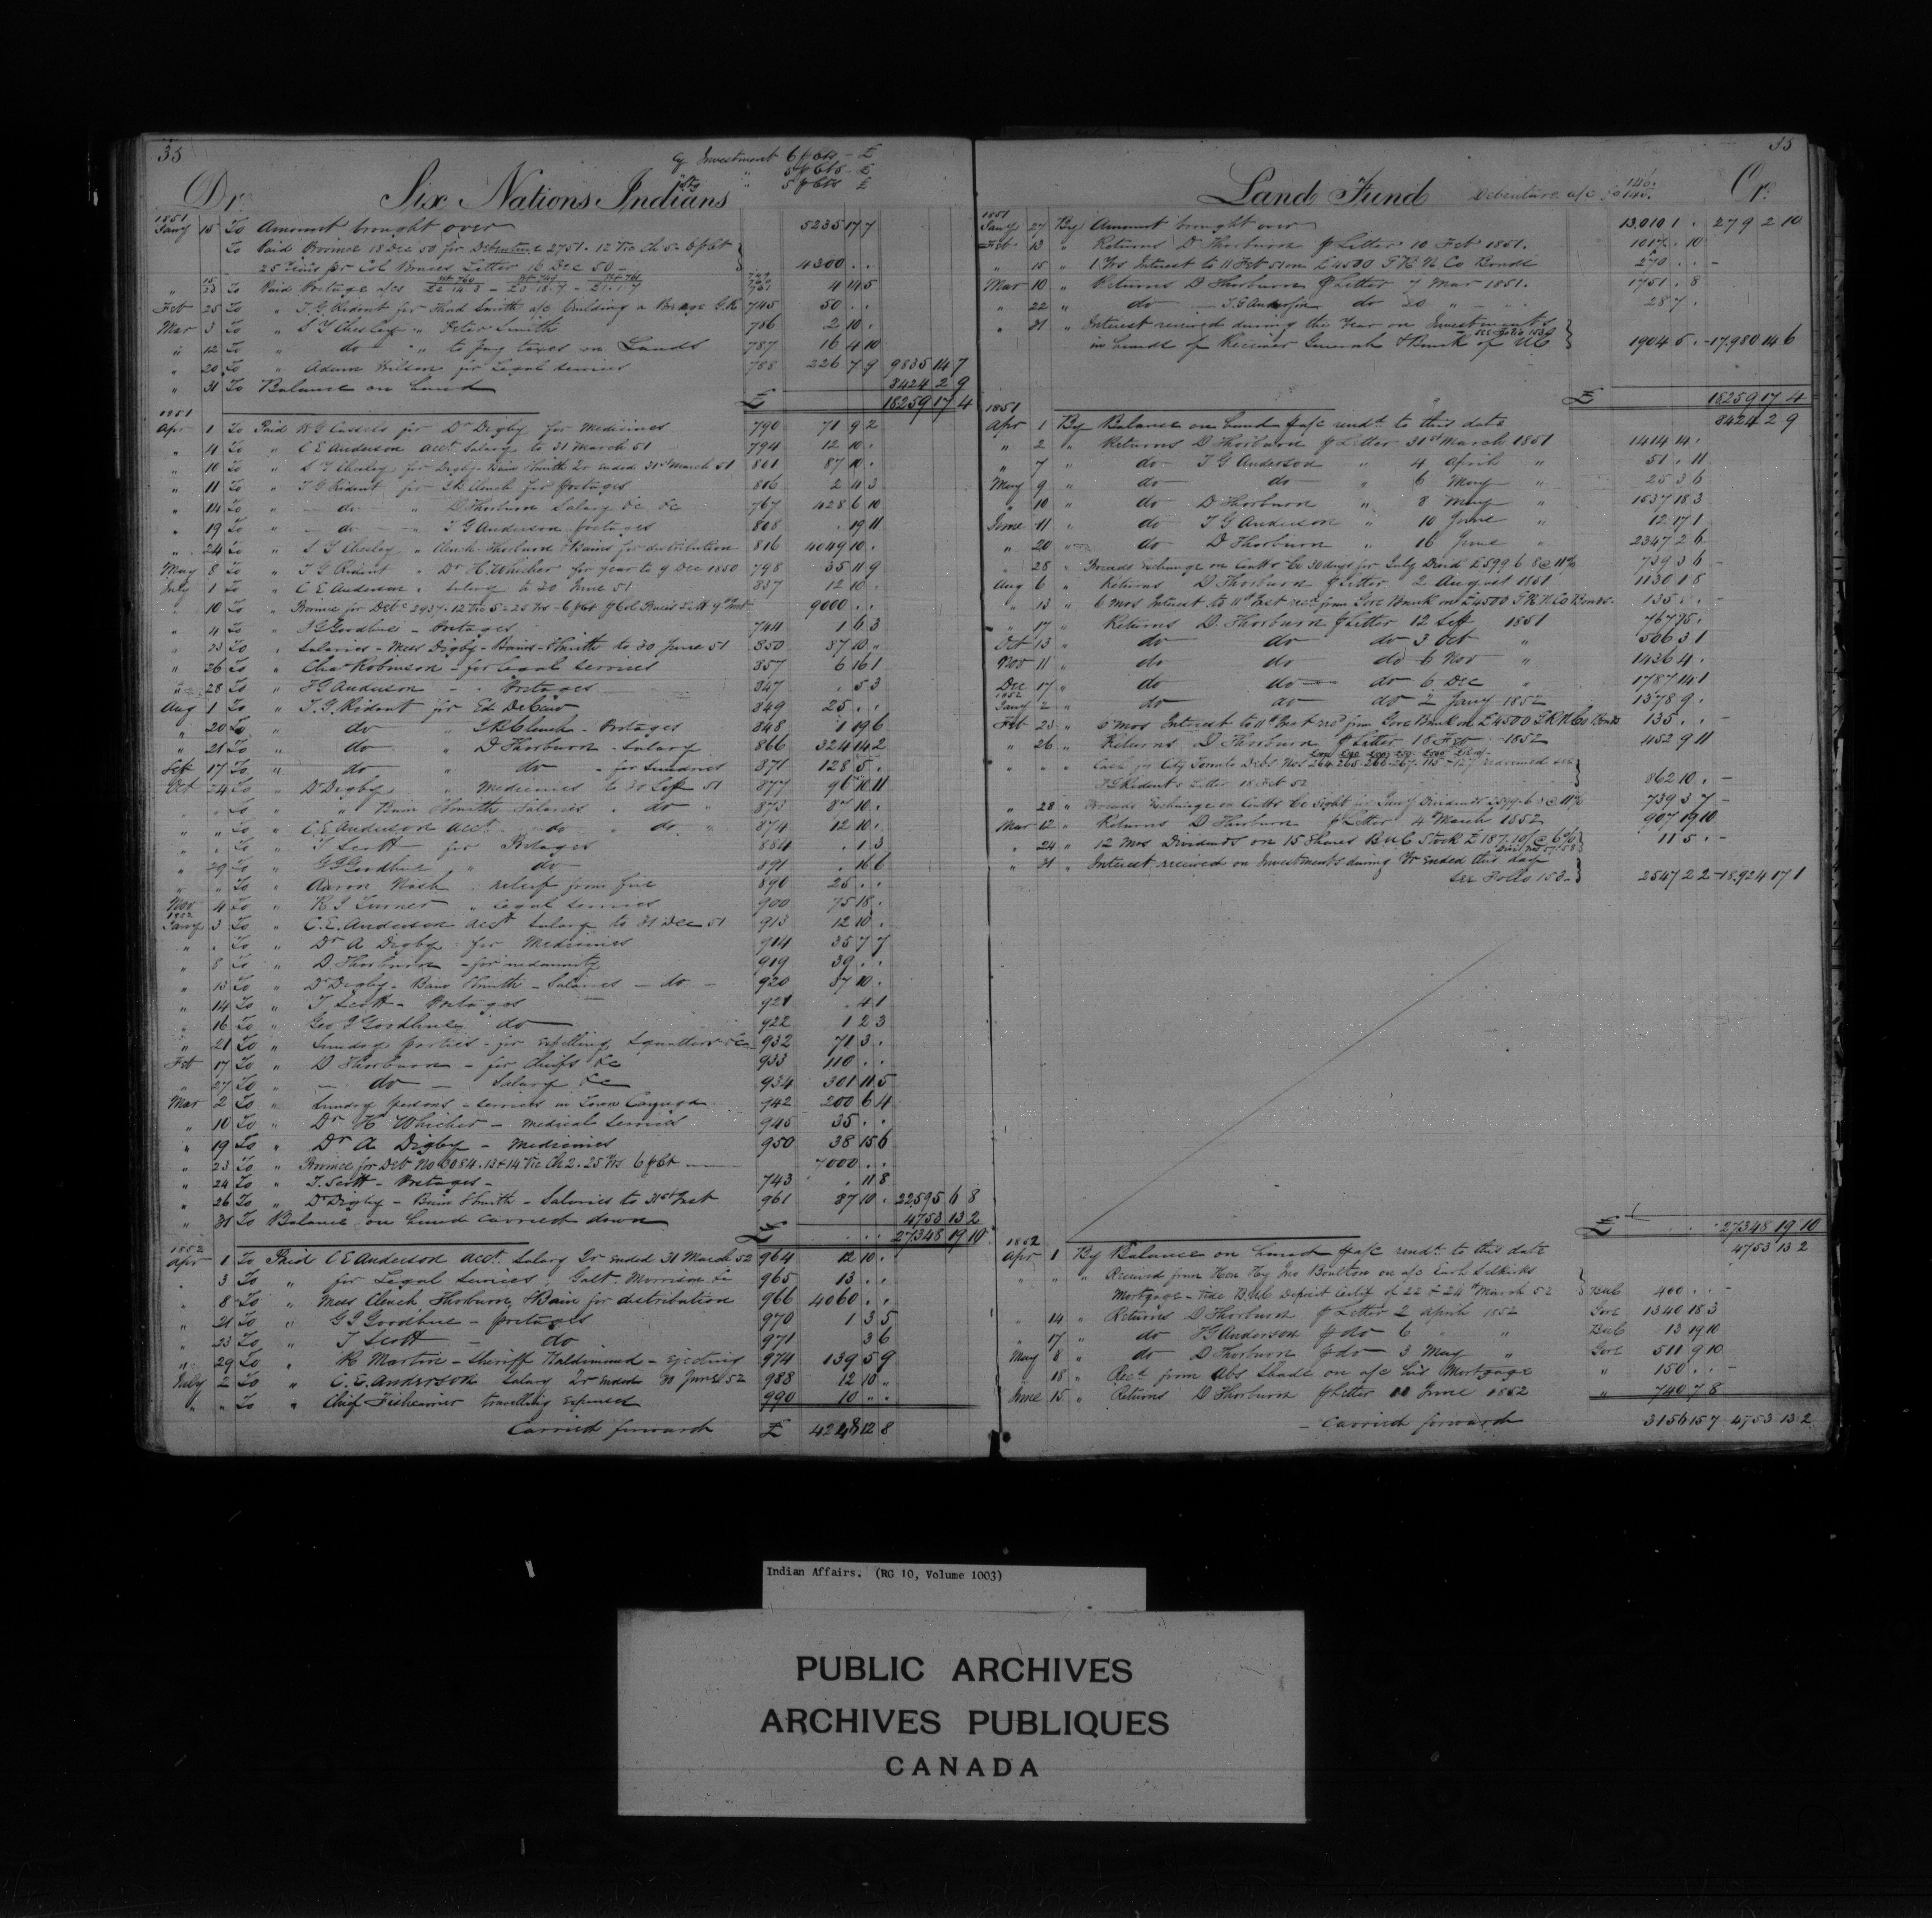 35
Cy Investment 6 p Cts - £
" 5 p Cts - £
" 5 p Cts £
Dr. Six Nations Indians
1851
Jany 15 To Amount brought over 5235 17 7
To Paid Province 18 Dec 50 for Debenture 2751. 12 Vic Ch 5 - 6 p Ct
25 Years pr Col Bruces Letter 16 Dec 50 - 4300 . .
" 23 To Paid Postage a/cs £2 14 3 - £3 18. 7 - £1. 1. 7 761 4 14 5
Feb 25 To " T. G. Ridout for Smith a/c building a Bridge G.R. 745 50 . .
Mar 3 To " S Y Chesley " Peter Smith 786 2 10 .
" 12 To " do " to pay taxes on Lands 787 16 4 10
" 20 To " Adam Wilson for Legal Services 788 226 7 9 9835 14 7
" 31 To Balance on hand 8424 2 9
£ 18259 17 4
1851
Apr 1 To Paid W G Cassels for Dr Digby for Medicines 790 71 9 2
" 4 To " C E Anderson acct. Salary to 31 March 51 794 12 10 .
" 10 To " S Y Chesley for Digby Bain Smith Qr ended 31st March 51 801 87 10 .
" 11 To " T G Ridout for Clench for postages 806 2 4 3
" 14 To " do " D Thorburn Salary &c &c 767 428 6 10
" 19 To " do " T G Anderson postages 808 . 19 11
" 24 To " S Y Chesley " Clench Thorburn & Bain for distribution 816 4049 10 .
May 8 To " T G Ridout " Dr H. Whicher for year to 9 Dec 1850 798 35 11 9
July 1 To " C E Anderson " Salary to 30 June 51 837 12 10 .
" 10 To " Province for Debe 2939. 12 Vic 5 - 25 Yrs - 6 p Ct p Col Bruces Lett 9th Inst 9000 . .
" 11 To " J G Goodhue - Postages 744 1 6 3
" 23 To " Salaries - Mess Digby - Bain - Smith to 30 June 51 850 87 10 "
" 26 To " Chas Robinson - for Legal Services 857 6 16 1
" 28 To " T G Anderson - Postages 847 . 5 3
Aug 1 To " T. G. Ridout for Ed De Cew 849 25 . .
" 20 To " do " J B Clench - Postages 848 1 19 6
" 21 To " do " D Thorburn - Salary 866 324 14 2
Sept 17 To " do " do - for Sundries 871 128 5 .
Oct 24 To " Dr Digby " Medicines to 30 Sept 51 877 96 10 11
" " To " " Bain & Smith Salaries " do " 873 87 10 .
" " To " C. E. Anderson acct. do " do " 874 12 10 .
" " To " T Scott for Postages 884 . 1 3
" 29 To " G J Goodhue " do 891 . 16 6
" " To " Aaron Nash " relief from fire 896 25 . .
Nov 4 To " R J Turner " Legal Services 900 75 18 .
1852
Jany 3 To " C. E. Anderson acct Salary to 31 Dec 51 913 12 10 .
" " To " Dr A Digby for Medicines 914 35 7 7
" 8 To " D. Thorburn - for indemnity 919 39 . .
" 13 To " Dr Digby - Bain & Smith - Salaries - do - 920 87 10 .
" 14 To " T Scott - Postages 921 . 4 1
" 16 To " Geo J Goodhue do 922 1 2 3
" 21 To " Sundry parties - for Expelling Squatters &c 932 71 3 .
Feb 17 To " D Thorburn - for Chiefs &c 933 110 . .
" 27 To " - do - Salary &c 934 301 11 5
Mar 2 To " Sundry persons - services in Town Cayuga 942 200 6 4
" 10 To " Dr H Whicher - medical Services 945 35 . .
" 19 To " Dr A Digby - Medicines 950 38 15 6
" 23 To " Province for Deb No 3084. 13 & 14 Vic Ch 2. 25 Yrs 6 p Ct 7000 . .
" 24 To " T. Scott - Postages - 743 . 11 8
" 26 To " Dr Digby - Bain & Smith - Salaries to 31st Inst 961 87 10 . 22595 6 8
" 31 To Balance on hand carried down 4753 13 2
£ 27348 19 10
1852
Apr 1 To Paid C E Anderson acct. Salary Qr ended 31 March 52 964 12 10 .
" 3 To " for Legal Services, Galt - Morrison &c 965 13 . .
" 8 To " Mess Clench Thorburn, & Bain for distribution 966 4060 . .
" 21 To " G J Goodhue - postages 970 1 3 5
" 23 To " T Scott - do 971 3 6
" 29 To " R Martin - Sheriff Haldimand - Ejecting 974 139 5 9
July 2 To " C. E. Anderson Salary Qr ended 30 June 52 988 12 10 "
" " To " Chief Fishcarrier travelling Expenses 990 10 . .
Carried forward £ 4248 12 8
35
Land Fund Debenture a/c fo 146. 140. Cr.
1851
Jany 27 By Amount brought over 13010 1 . 279 2 10
Feb 13 " Returns D Thorburn p Letter 10 Feb 1851. 10 .
" 15 " 1 Yrs Interest to 11 Feb 51 on £4500 G R N Co Bonds 270 . . -
Mar 10 " Returns D Thorburn p Letter 7 Mar 1851. 1751 . 8
" 22 " do T. G Anderson do 20 " 28 7 .
" 31 " Interest received during the Year on Investments
in hands of Receiver General & Bank of U C See Folio 153 1904 5 . - 17.980 14 6
£ 18259 17 4
1851
Apr 1 By Balance on hand p a/c rendd. to this date 8424 2 9
" 2 " Returns D Thorburn p Letter 31st March 1851 1414 14 .
" 7 " do T G Anderson " 4 April " 51 . 11
May 9 " do do " 6 May " 25 3 6
" 10 " do D Thorburn " 8 May " 1537 18 3
June 11 " do T G Anderson " 10 June " 12 17 1
" 20 " do D Thorburn " 16 June " 2347 2 6
" 28 " Proceeds Exchange on Coutts &c 30 days for July Divid £599 6 8 @ 11 739 3 6
Aug 6 " Returns D Thorburn p Letter 2 August 1851 1130 1 8
" 13 " 6 mos Interest to 11th Inst recd from Gore Bank on £4500 G R N Co Bonds - 135 . . -
" 17 " Returns D. Thorburn p Letter 12 Sept 1851 767 75 .
Oct 13 " do do do 3 Oct " 506 3 1
Nov 11 " do do do 6 Nov " 1436 4 .
Dec 17 " do do do 6 Dec " 1787 14 1
1852
Jany 2 " do do do 2 Jany 1852 1378 9 .
Feb 23 " 6 mos Interest to 11th Inst recd from Gore Bank on £4500 G R N Co Bonds 135 . . -
" 26 " Returns D. Thorburn p Letter 18 Feb 1852 452 9 11
" " " Cash for City Toronto Debs Nos 264. 265. 266. 267. 115. 127 redeemed see
T G Ridout's Letter 18 Feb 52 862 10 . -
" 28 " Proceeds Exchange on Coutts &c Sight for Jany Dividends £599. 6. 8 @ 11 739 3 7 -
Mar 12 " Returns D Thorburn p Letter 4th March 1852 907 19 10
" 24 " 12 Mos Dividends on 15 Shares B U C Stock £187. 10/ @ 6% 11 5 . -
" 31 " Interest received on Investments during Yr Ended this day
See Folio 153 - 2547 2 2 - 18.924 17 1
£ 27348 19 10
1852
Apr 1 By Balance on hand p a/c rendd. to this date 4753 13 2
" " " Received from Hon Hy Jno Boulton on a/c Earl Selkirks
Mortgage - vide B U C Deposit Certif of 22 & 24th March 52 BUC 400 . . -
" 14 " Returns D Thorburn p Letter 2 April 1852 Gore 1340 18 3
" 17 " do T G Anderson p do 6 " " BUC 13 19 10
May 8 " do D Thorburn p do 3 May " Gore 511 9 10
" 18 " Recd. from Abs Shade on a/c his Mortgage " 150 . . -
June 15 " Returns D Thorburn p Letter 11 June 1852 " 740 7 8
- Carried forward 3156 15 7 4753 13 2
Indian Affairs. (RG 10, Volume 1003)
PUBLIC ARCHIVES
ARCHIVES PUBLIQUES
CANADA